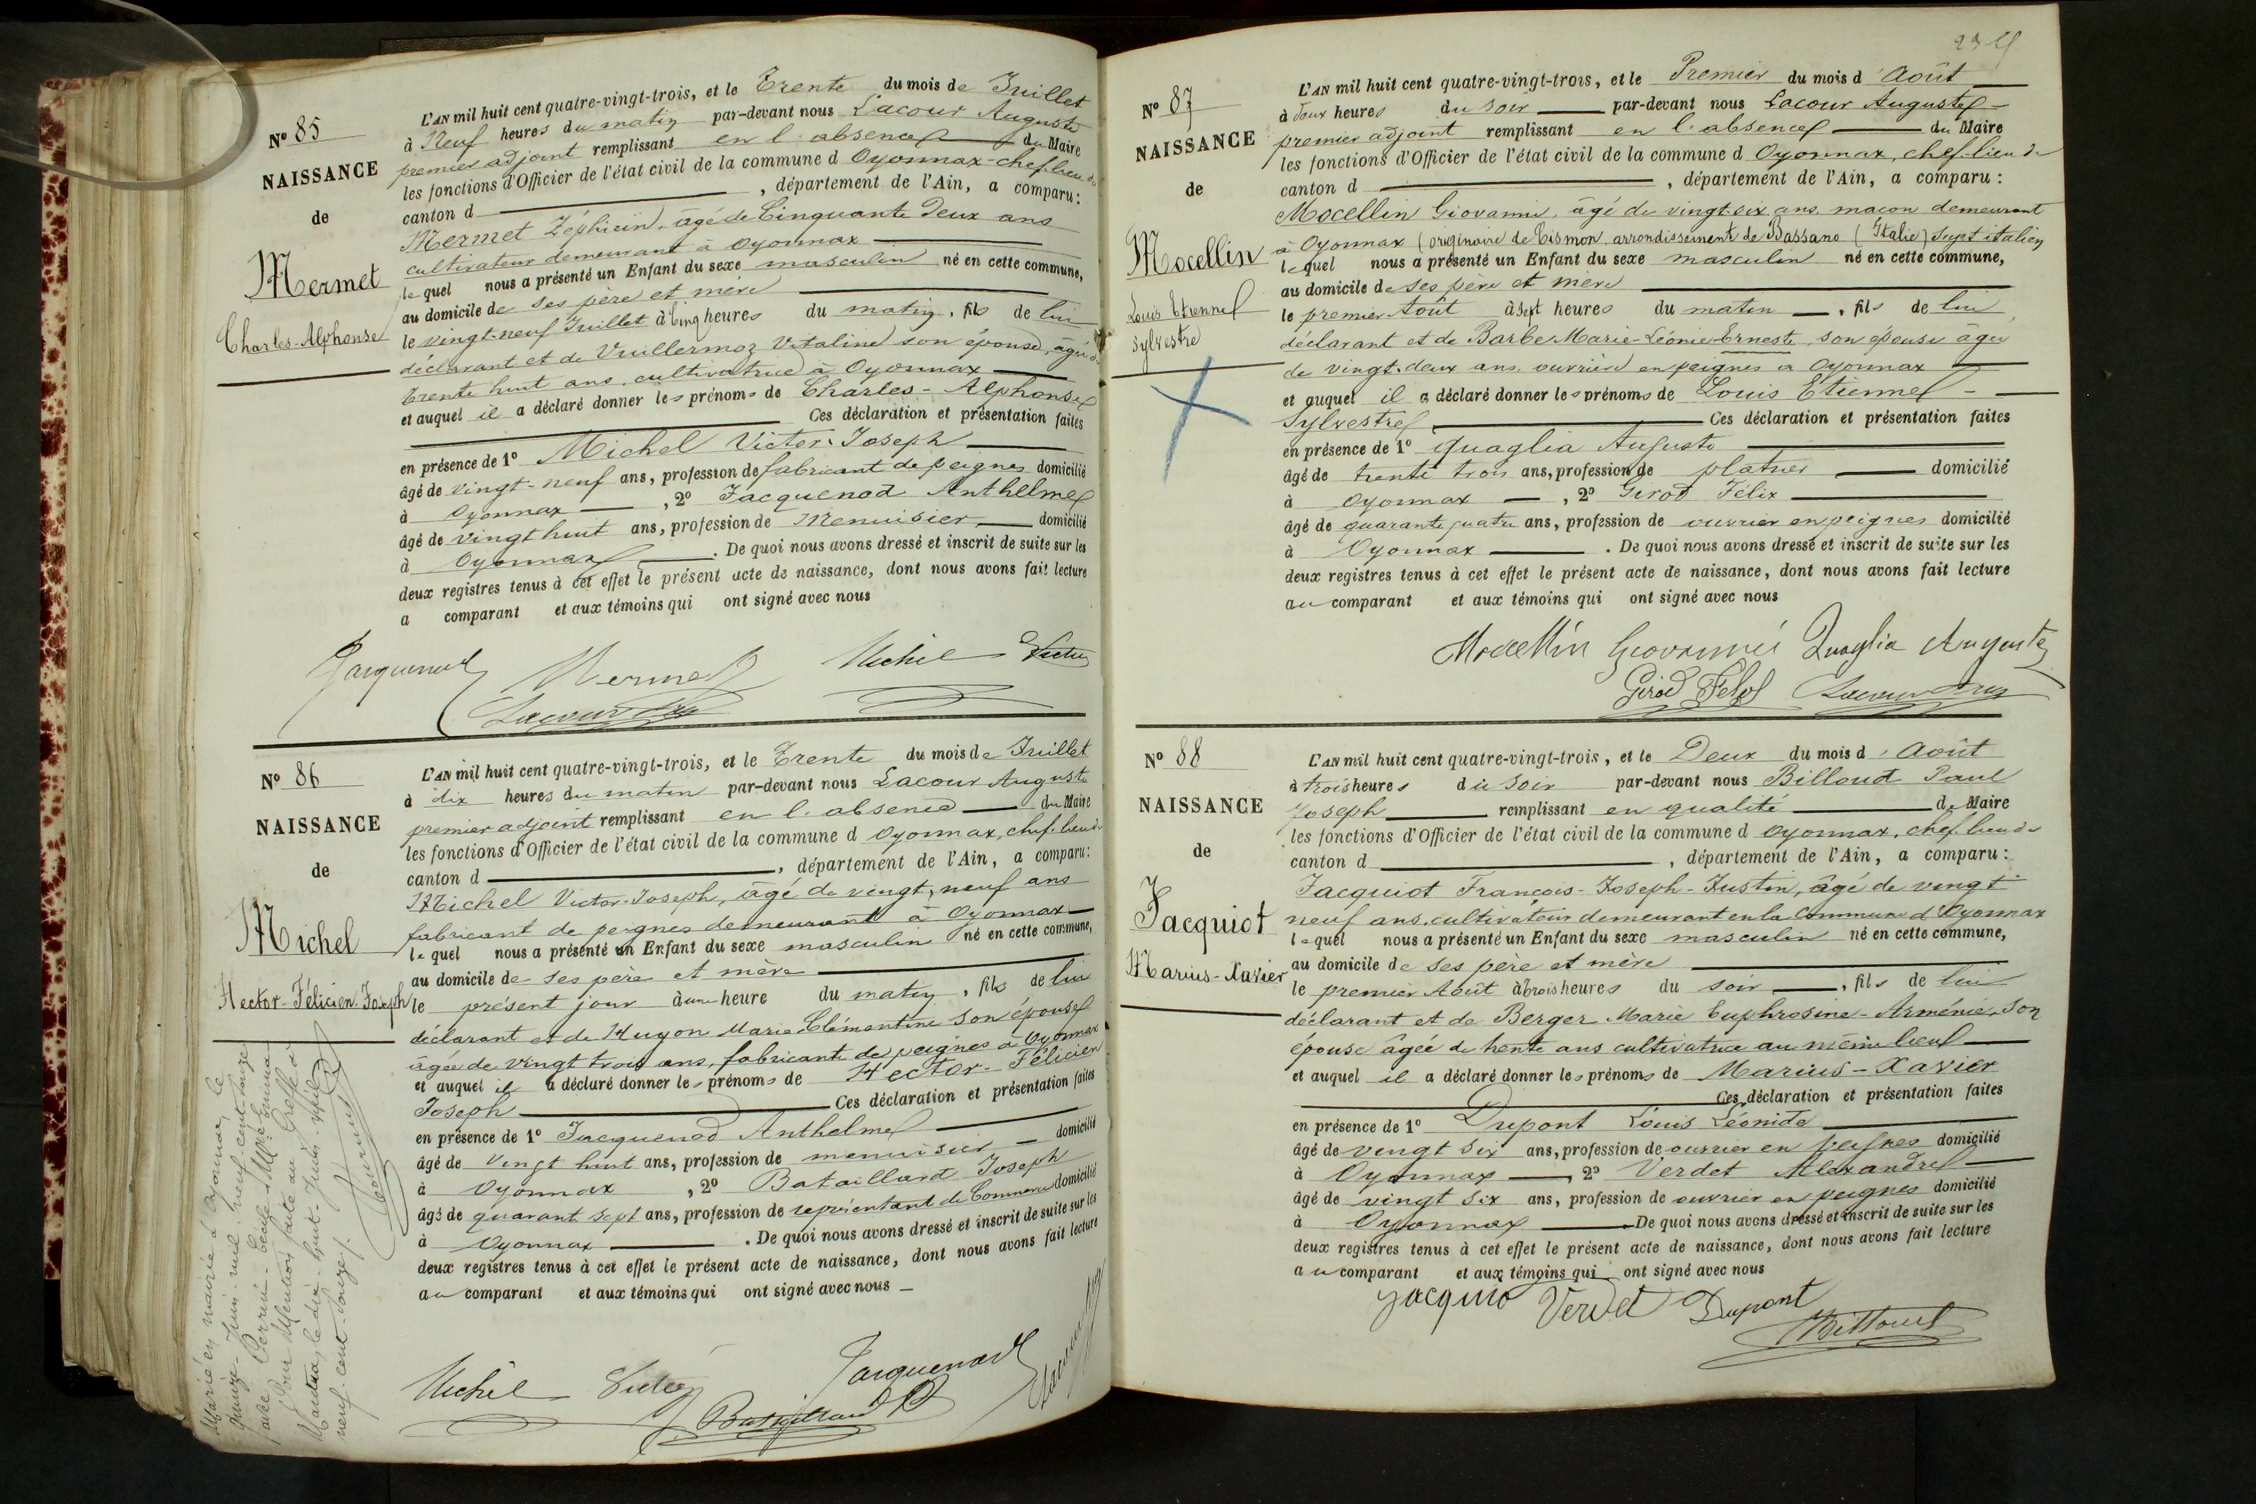 N° 85
NAISSANCE
de
Mermet
Charles-Alphonse
L'AN mil huit cent quatre-vingt-trois, et le Trente du mois de Juillet
à Neuf heures du matin par-devant nous Lacour Auguste
premier adjoint remplissant en l'absence du Maire
les fonctions d'Officier de l'état civil de la commune d Oyonnax-chef-lieu de
canton d , département de l'Ain, a comparu:
Mermet Zéphirin, âgé de Cinquante Deux ans
cultivateur demeurant à Oyonnax
lequel nous a présenté un Enfant du sexe masculin né en cette commune,
au domicile de ses père et mère
le vingt-neuf Juillet à Cinq heures du matin, fils de lui
déclarant et de Vuillermoz Vitaline son épouse, âgée de
Trente huit ans, cultivatrice à Oyonnax
et auquel il a déclaré donner les prénoms de Charles-Alphonse
Ces déclaration et présentation faites
en présence de 1° Michel Victor-Joseph
âgé de vingt-neuf ans, profession de fabricant de peignes domicilié
à Oyonnax , 2° Jacquenod Anthelme
âgé de vingt huit ans, profession de Menuisier domicilié
à Oyonnax . De quoi nous avons dressé et inscrit de suite sur les
deux registres tenus à cet effet le présent acte de naissance, dont nous avons fait lecture
a comparant et aux témoins qui ont signé avec nous
Jacquenod Mermet Michel Victor
Lacour
N° 86
NAISSANCE
de
Michel
Hector-Félicien-Joseph
L'AN mil huit cent quatre-vingt-trois, et le Trente du mois de Juillet
à dix heures du matin par-devant nous Lacour Auguste
premier adjoint remplissant en l'absence du Maire
les fonctions d'Officier de l'état civil de la commune d Oyonnax, chef-lieu de
canton d , département de l'Ain, a comparu:
Michel Victor-Joseph, âgé de vingt-neuf ans
fabricant de peignes demeurant à Oyonnax
lequel nous a présenté un Enfant du sexe masculin né en cette commune,
au domicile de ses père et mère
le présent jour à une heure du matin, fils de lui
déclarant et de Huyon Marie Clémentine son épouse
âgée de vingt trois ans, fabricante de peignes à Oyonnax
et auquel il a déclaré donner les prénoms de Hector-Félicien
Joseph Ces déclaration et présentation faites
en présence de 1° Jacquenod Anthelme
âgé de vingt huit ans, profession de menuisier domicilié
à Oyonnax , 2° Bataillard Joseph
âgé de quarant sept ans, profession de représentant de Commerce domicilié
à Oyonnax . De quoi nous avons dressé et inscrit de suite sur les
deux registres tenus à cet effet le présent acte de naissance, dont nous avons fait lecture
au comparant et aux témoins qui ont signé avec nous
Michel Victor Jacquenod
Bataillard Lacour
Marié en mairie d'Oyonnax, le
Juin mil neuf cent onze
avec Perrin
Pour Mention faite au Greffe de
Nantua, le dix-huit Juin mil
neuf cent onze
234
N° 87
NAISSANCE
de
Mocellin
Louis Etienne
Sylvestre
L'AN mil huit cent quatre-vingt-trois, et le Premier du mois d'Août
à Deux heures du soir par-devant nous Lacour Auguste
premier adjoint remplissant en l'absence du Maire
les fonctions d'Officier de l'état civil de la commune d Oyonnax, chef-lieu de
canton d , département de l'Ain, a comparu:
Mocellin Giovanni, âgé de vingt-six ans, maçon demeurant
à Oyonnax (originaire de Cismon arrondissement de Bassano (Italie) sujet italien
lequel nous a présenté un Enfant du sexe masculin né en cette commune,
au domicile de ses père et mère
le premier Août à sept heures du matin , fils de lui
déclarant et de Barbe Marie-Léonie-Erneste, son épouse âgée
de vingt-deux ans, ouvrière en peignes à Oyonnax
et auquel il a déclaré donner les prénoms de Louis Etienne
Sylvestre Ces déclaration et présentation faites
en présence de 1° Quaglia Auguste
âgé de trente trois ans, profession de platrier domicilié
à Oyonnax , 2° Girod Félix
âgé de quarante quatre ans, profession de ouvrier en peignes domicilié
à Oyonnax . De quoi nous avons dressé et inscrit de suite sur les
deux registres tenus à cet effet le présent acte de naissance, dont nous avons fait lecture
au comparant et aux témoins qui ont signé avec nous
Mocellin Giovanni Quaglia Auguste
Girod Felix Lacour
N° 88
NAISSANCE
de
Jacquiot
Marius-Xavier
L'AN mil huit cent quatre-vingt-trois, et le Deux du mois d'Août
à trois heures du soir par-devant nous Billoud Paul
Joseph remplissant en qualité de Maire
les fonctions d'Officier de l'état civil de la commune d Oyonnax, chef-lieu de
canton d , département de l'Ain, a comparu:
Jacquiot François-Joseph-Justin, âgé de vingt
neuf ans, cultivateur demeurant en la Commune d'Oyonnax
lequel nous a présenté un Enfant du sexe masculin né en cette commune,
au domicile de ses père et mère
le premier Août à trois heures du soir , fils de lui
déclarant et de Berger Marie Euphrosine-Arménie, son
épouse âgée de trente ans cultivatrice au même lieu
et auquel il a déclaré donner les prénoms de Marius-Xavier
Ces déclaration et présentation faites
en présence de 1° Dupont Louis Léonide
âgé de vingt six ans, profession de ouvrier en peignes domicilié
à Oyonnax , 2° Verdet Alexandre
âgé de vingt six ans, profession de ouvrier en peignes domicilié
à Oyonnax . De quoi nous avons dressé et inscrit de suite sur les
deux registres tenus à cet effet le présent acte de naissance, dont nous avons fait lecture
au comparant et aux témoins qui ont signé avec nous
Jacquio Verdet Dupont
Billoud